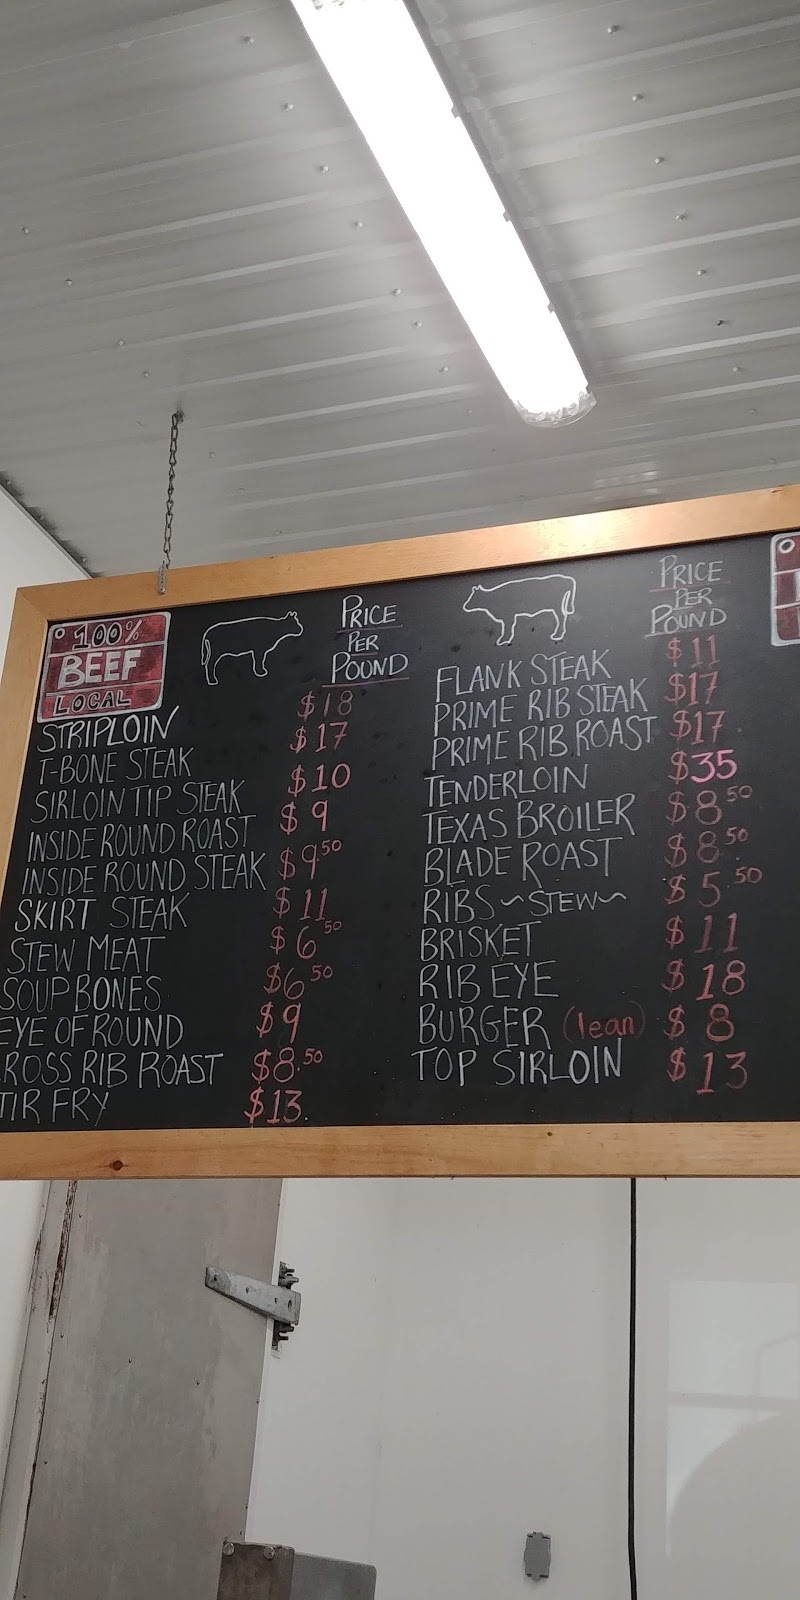 100%
BEEF
LOCAL
PRICE
PER
POUND
STRIPLOIN $18
T-BONE STEAK $17
SIRLOIN TIP STEAK $10
INSIDE ROUND ROAST $9
INSIDE ROUND STEAK $9.50
SKIRT STEAK $11
STEW MEAT $6.50
SOUP BONES $6.50
EYE OF ROUND $9
ROSS RIB ROAST $8.50
TIR FRY $13.
PRICE
PER
POUND
FLANK STEAK $11
PRIME RIB STEAK $17
PRIME RIB ROAST $17
TENDERLOIN $35
TEXAS BROILER $8.50
BLADE ROAST $8.50
RIBS ~STEW~ $5.50
BRISKET $11
RIB EYE $18
BURGER (lean) $8
TOP SIRLOIN $13